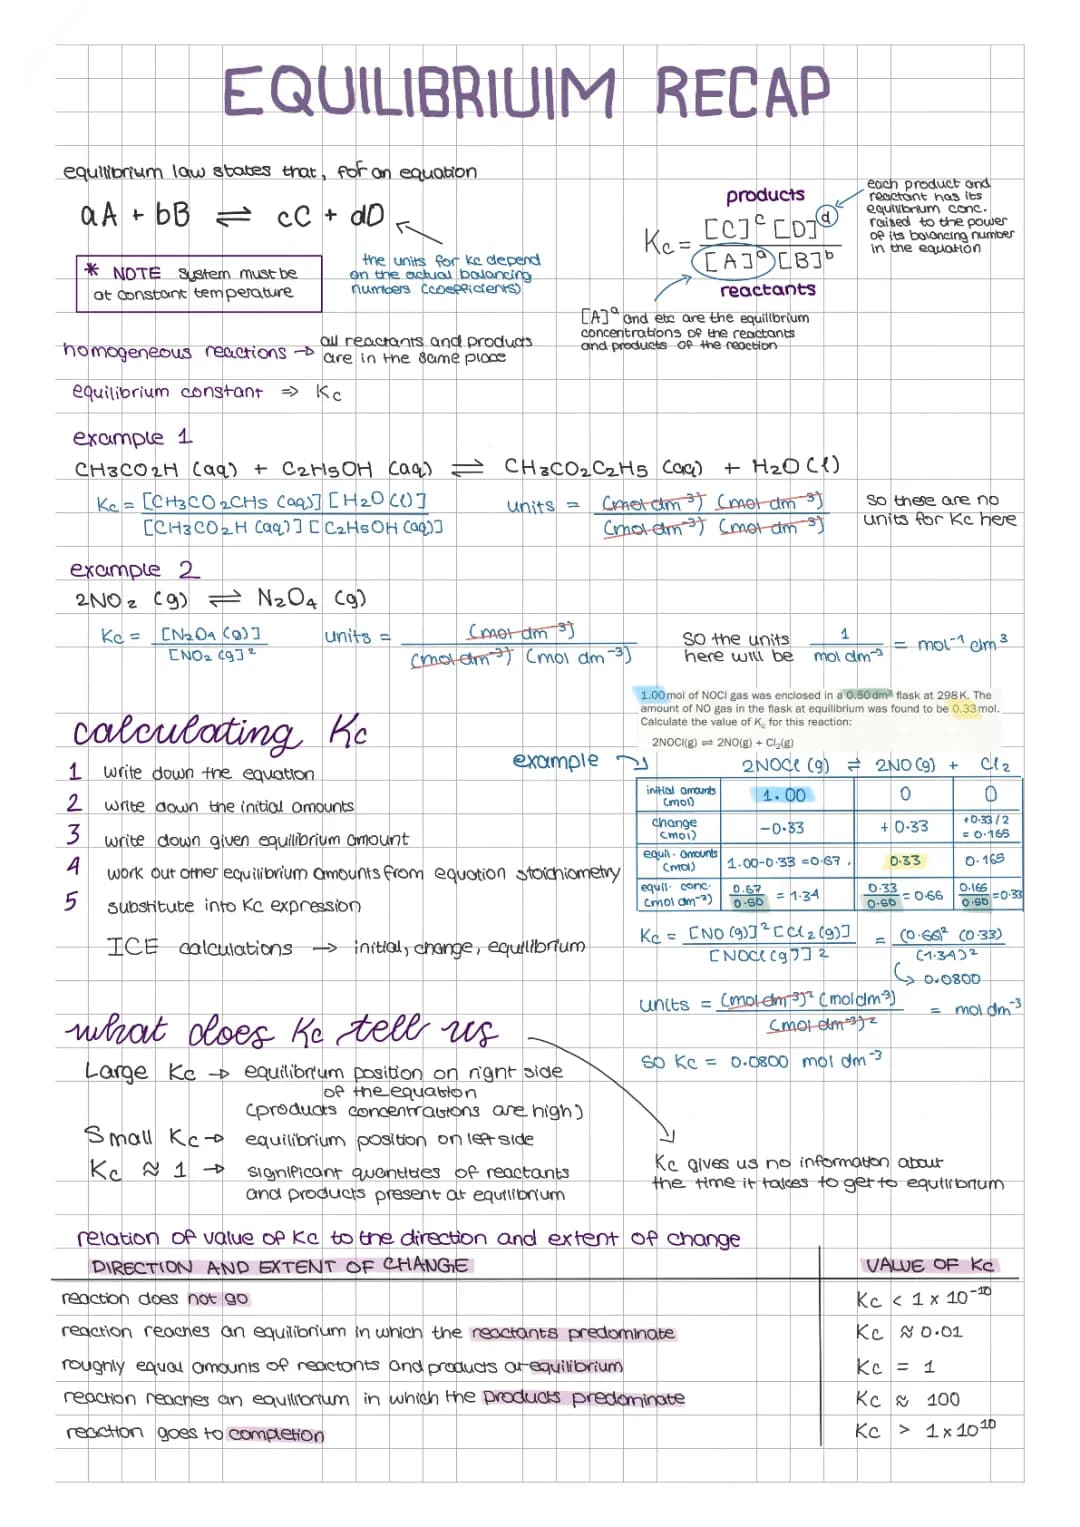 EQUILIBRIUIM RECAP
equilibrium law states that, for an equation
aA + bB ⇌ cC + dD
* NOTE system must be
at constant temperature
the units for Kc depend
on the actual balancing
numbers (coefficients)
products
Kc = [C]ᶜ [D]ᵈ / [A]ᵃ [B]ᵇ
reactants
each product and
reactant has its
equilibrium conc.
raised to the power
of its balancing number
in the equation
[A]ᵃ and etc are the equilibrium
concentrations of the reactants
and products of the reaction
homogeneous reactions → all reactants and products
are in the same place
equilibrium constant ⇒ Kc
example 1
CH3CO2H (aq) + C2H5OH (aq) ⇌ CH3CO2C2H5 (aq) + H2O (l)
Kc = [CH3CO2CH5 (aq)] [H2O (l)] / [CH3CO2H (aq)] [C2H5OH (aq)]
units = (mol dm⁻³) (mol dm⁻³) / (mol dm⁻³) (mol dm⁻³)
so there are no
units for Kc here
example 2
2NO2 (g) ⇌ N2O4 (g)
Kc = [N2O4 (g)] / [NO2 (g)]²
units = (mol dm⁻³) / (mol dm⁻³) (mol dm⁻³)
so the units
here will be
1 / mol dm⁻³ = mol⁻¹ dm³
calculating Kc
1 write down the equation
2 write down the initial amounts
3 write down given equilibrium amount
4 work out other equilibrium amounts from equation stoichiometry
5 substitute into Kc expression
ICE calculations → initial, change, equilibrium
1.00 mol of NOCl gas was enclosed in a 0.50 dm³ flask at 298 K. The
amount of NO gas in the flask at equilibrium was found to be 0.33 mol.
Calculate the value of Kc for this reaction:
2NOCl(g) ⇌ 2NO(g) + Cl₂(g)
example
2NOCl (g) ⇌ 2NO (g) + Cl2
initial amounts (mol) 1.00 0 0
change (mol) -0.33 +0.33 +0.33/2 = 0.165
equil. amounts (mol) 1.00-0.33 = 0.67 . 0.33 0.165
equil. conc. (mol dm⁻³) 0.67/0.50 = 1.34 0.33/0.50 = 0.66 0.165/0.50 = 0.33
Kc = [NO (g)]² [Cl2 (g)] / [NOCl (g)] 2 = (0.66)² (0.33) / (1.34)²
0.0800
units = (mol dm⁻³)² (mol dm³) / (mol dm⁻³)² = mol dm⁻³
so Kc = 0.0800 mol dm⁻³
what does Kc tell us
Large Kc → equilibrium position on right side
of the equation
(products concentrations are high)
Small Kc → equilibrium position on left side
Kc ≈ 1 → significant quantities of reactants
and products present at equilibrium
Kc gives us no information about
the time it takes to get to equilibrium
relation of value of Kc to the direction and extent of change
DIRECTION AND EXTENT OF CHANGE VALUE OF Kc
reaction does not go Kc < 1 x 10⁻¹⁰
reaction reaches an equilibrium in which the reactants predominate Kc ≈ 0.01
roughly equal amounts of reactants and products at equilibrium Kc = 1
reaction reaches an equilibrium in which the products predominate Kc ≈ 100
reaction goes to completion Kc > 1 x 10¹⁰